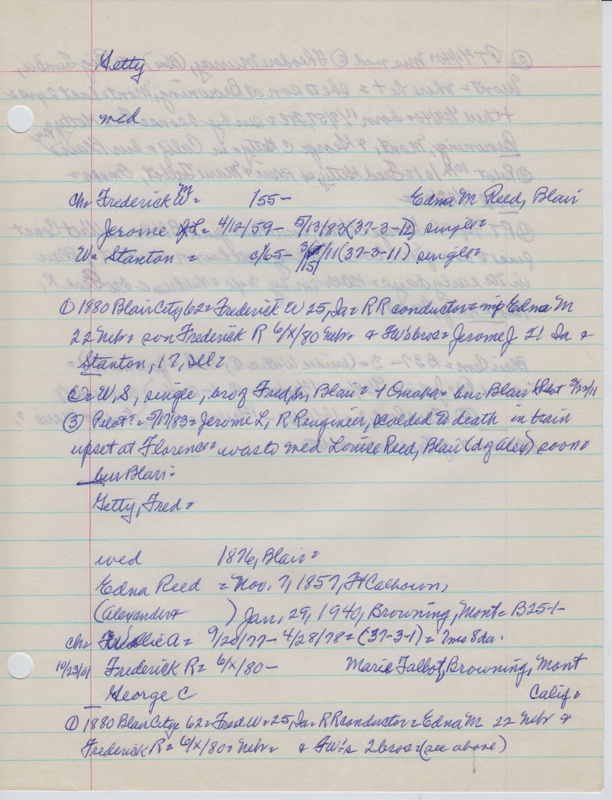 Getty
med
ch= Frederick W= 1/55- Edna M Reed, Blair
Jerome L= 4/12/59- 5/13/83 (37-3-12) single=
W= Stanton = c/65- /11 (37-3-11) single=
① 1880 Blair City 62= Frederick W 25, Ia= RR conductor= Edna M
22 Nebr= son Frederick R 6/x/80 Nebr= & FW's bros= Jerome J 21 Ia &
Stanton, 17, Ill=
②= W, S, single, bro of Fred, Blair= + Omaha= bur Blair (Pilot
③ Pilot= 5/17/83= Jerome L, RR engineer, scalded to death in train
upset at Florence= was to med Louise Reed, Blair (d of Alex) soon=
bur Blair=
Getty, Fred=
wed 1876, Blair=
Edna Reed = Nov. 7, 1857, Ft Calhoun,
(Alexander+ ) Jan, 29, 1940, Browning, Mont= B25-1-
ch= Willie A= 9/20/77- 4/28/78= (37-3-1)= 7mo 8da.
10/23/01 Frederick R= 6/x/80- Marie Talbot, Browning, Mont
George C Calif.
① 1880 Blair City 62= Fred W= 25, Ia= RR conductor= Edna M 22 Nebr &
Frederick R= 6/x/80= Nebr= & FW's 2 bros= (see above)